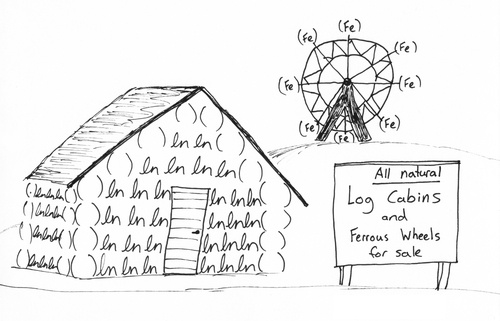 (Fe)
(Fe) (Fe)
(Fe) (Fe)
(Fe) (Fe)
(Fe)
) (
) ln ln (
) ln ln ln ln (
( ) ln ln ln ( ) ( ) ln ln ln ln ln ln ( )
( ) ln ln ln ( ) ( ) ln ln ln ln ln ln ( )
( ) ln ln ln ( ) ( ) ln ln ln ln ln ln ( )
( ) ln ln ln ( ) ( ) ln ln ln ln ln ln ( )
All natural
Log Cabins
and
Ferrous Wheels
for sale